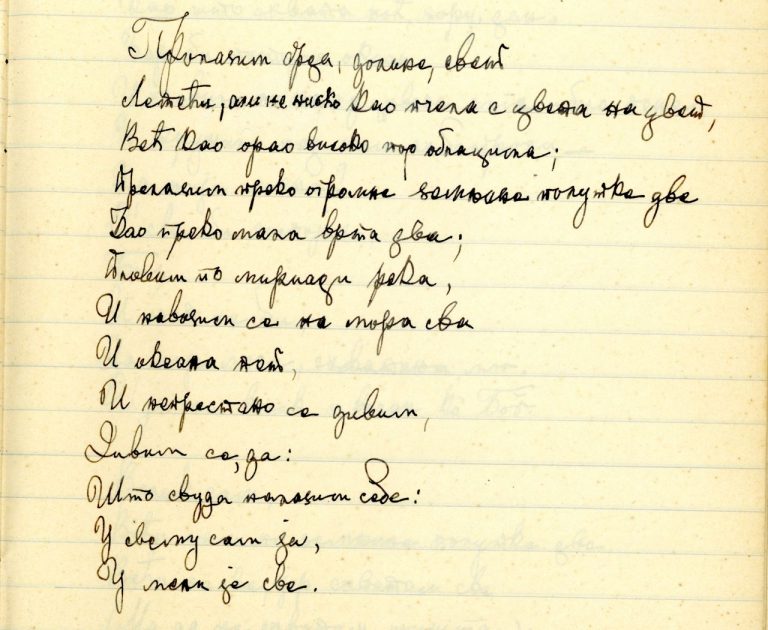 Пролазим брда, долине, свет
Летећи, али не ниско Као пчела с цвета на цвет,
Већ Као орао високо под облацима;
Прелазим преко огромнеземље попут две
Као преко мала врта два;
Пловим по миријади река,
И навозим се на мора сва
И океана пет,
И непрестано се дивим,
Дивим се, да:
Што свуда налазим себе:
У свему сам ја,
У мени је све.